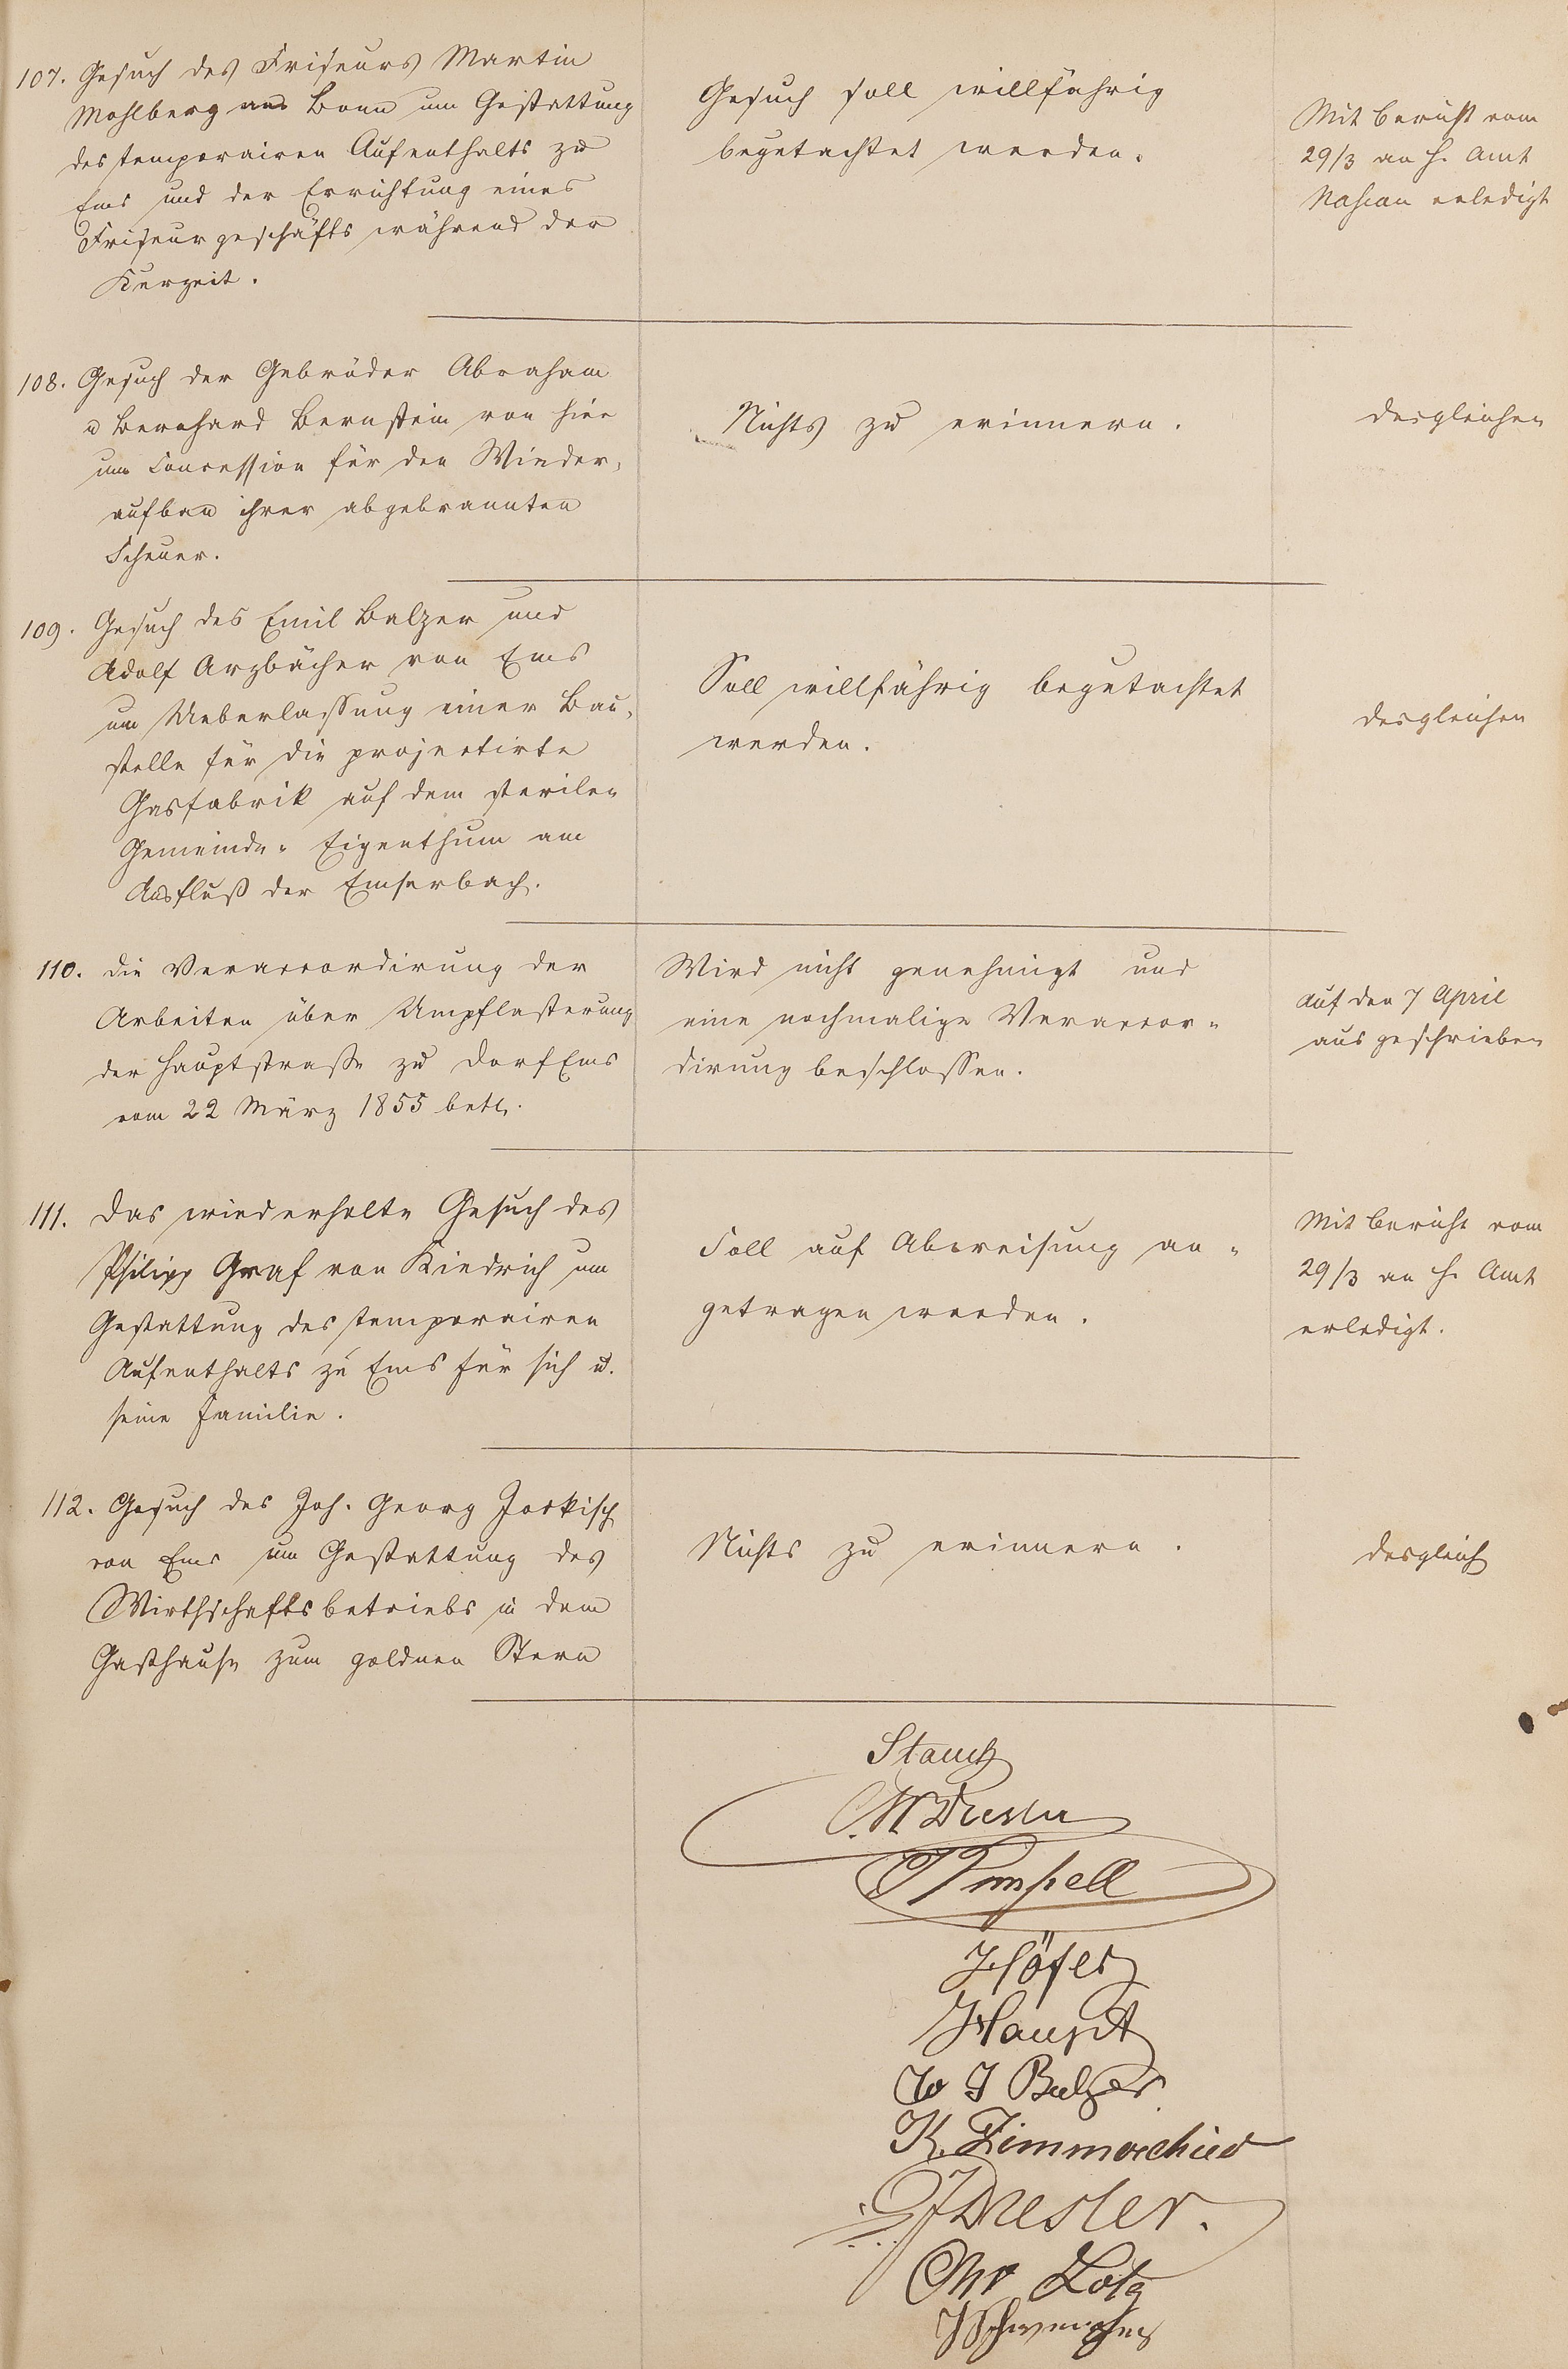 107. Gesuch des Friseurs Martin
Mahlberg aus Bonn um Gestattung
des temporairen Aufenthalts zu
Ems und der Errichtung eines
Friseurgeschäfts während der
Kurzeit.
Gesuch soll willfährig
begutachtet werden.
Mit Bericht vom
29/3 an H. Amt
Nassau erledigt
108. Gesuch der Gebrüder Abraham
u Bernhard Bernstein von hier
um Concession für den Wieder-
aufbau ihrer abgebrannten
Scheuer.
Nichts zu erinnern.
desgleichen
109. Gesuch des Emil Balzer und
Adolf Arzbächer von Ems
um Ueberlassung einer Bau-
stelle für die projectirte
Gasfabrik auf dem sterilen
Gemeinde-Eigenthum am
Ausfluß der Emserbach.
Soll willfährig begutachtet
werden.
desgleichen
110. Die Veraccordirung der
Arbeiten über Umpflasterung
der Hauptstraße zu Dorf Ems
vom 22 März 1855 betr.
Wird nicht genehmigt und
eine nochmalige Veraccor-
dirung beschlossen.
Auf den 7 April
ausgeschrieben
111. Das wiederholte Gesuch des
Philipp Graf von Kiedrich um
Gestattung des temporairen
Aufenthalts zu Ems für sich u.
seine Familie.
Soll auf Abweisung an-
getragen werden.
Mit Bericht vom
29/3 an H. Amt
erledigt.
112. Gesuch des Joh. Georg Jockisch
von Ems um Gestattung des
Wirthschaftsbetriebs in dem
Gasthause zum goldnen Stern
Nichts zu erinnern.
desgleich
Stauch
C. W Dresler
Pimpell
Höfer
Haupt
J Balzer
K. Zimmerschied
J Dresler.
Chr Lotz